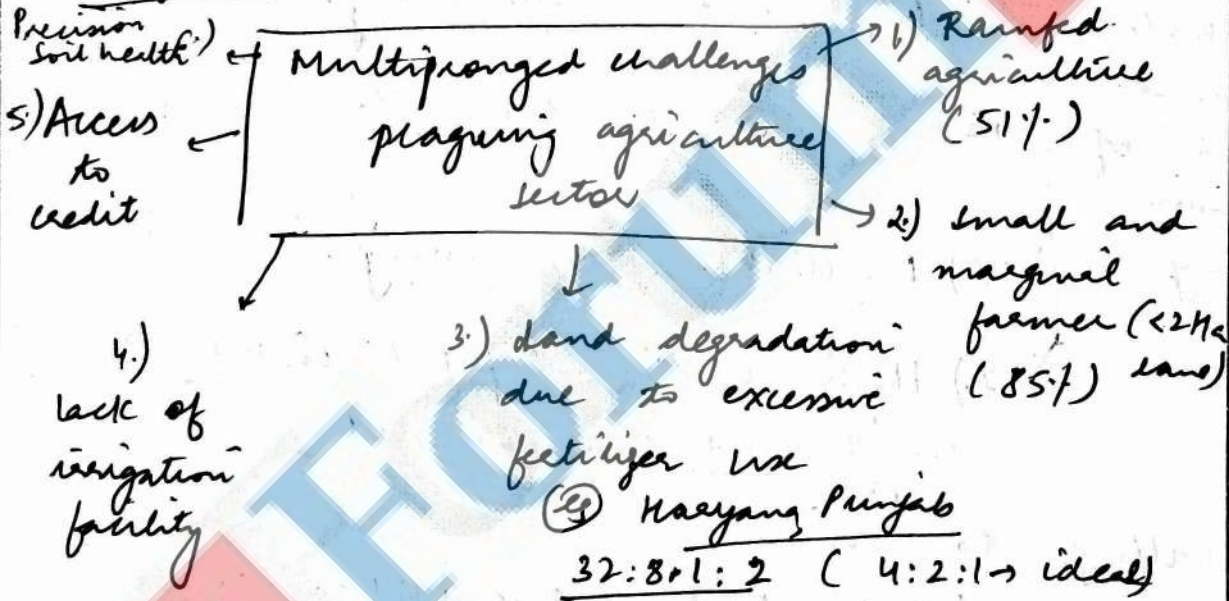 Precision
Soil health
Multipronged challenges
plaguing agriculture
sector
1.) Rainfed
agriculture
(51%)
2.) Small and
marginal
farmer (<2Ha
land)
(85%)
3.) Land degradation
due to excessive
fertilizer use
eg Haryana, Punjab
32:8.1:2 ( 4:2:1 → ideal)
4.)
lack of
irrigation
facility
5.) Access
to
credit
Forum